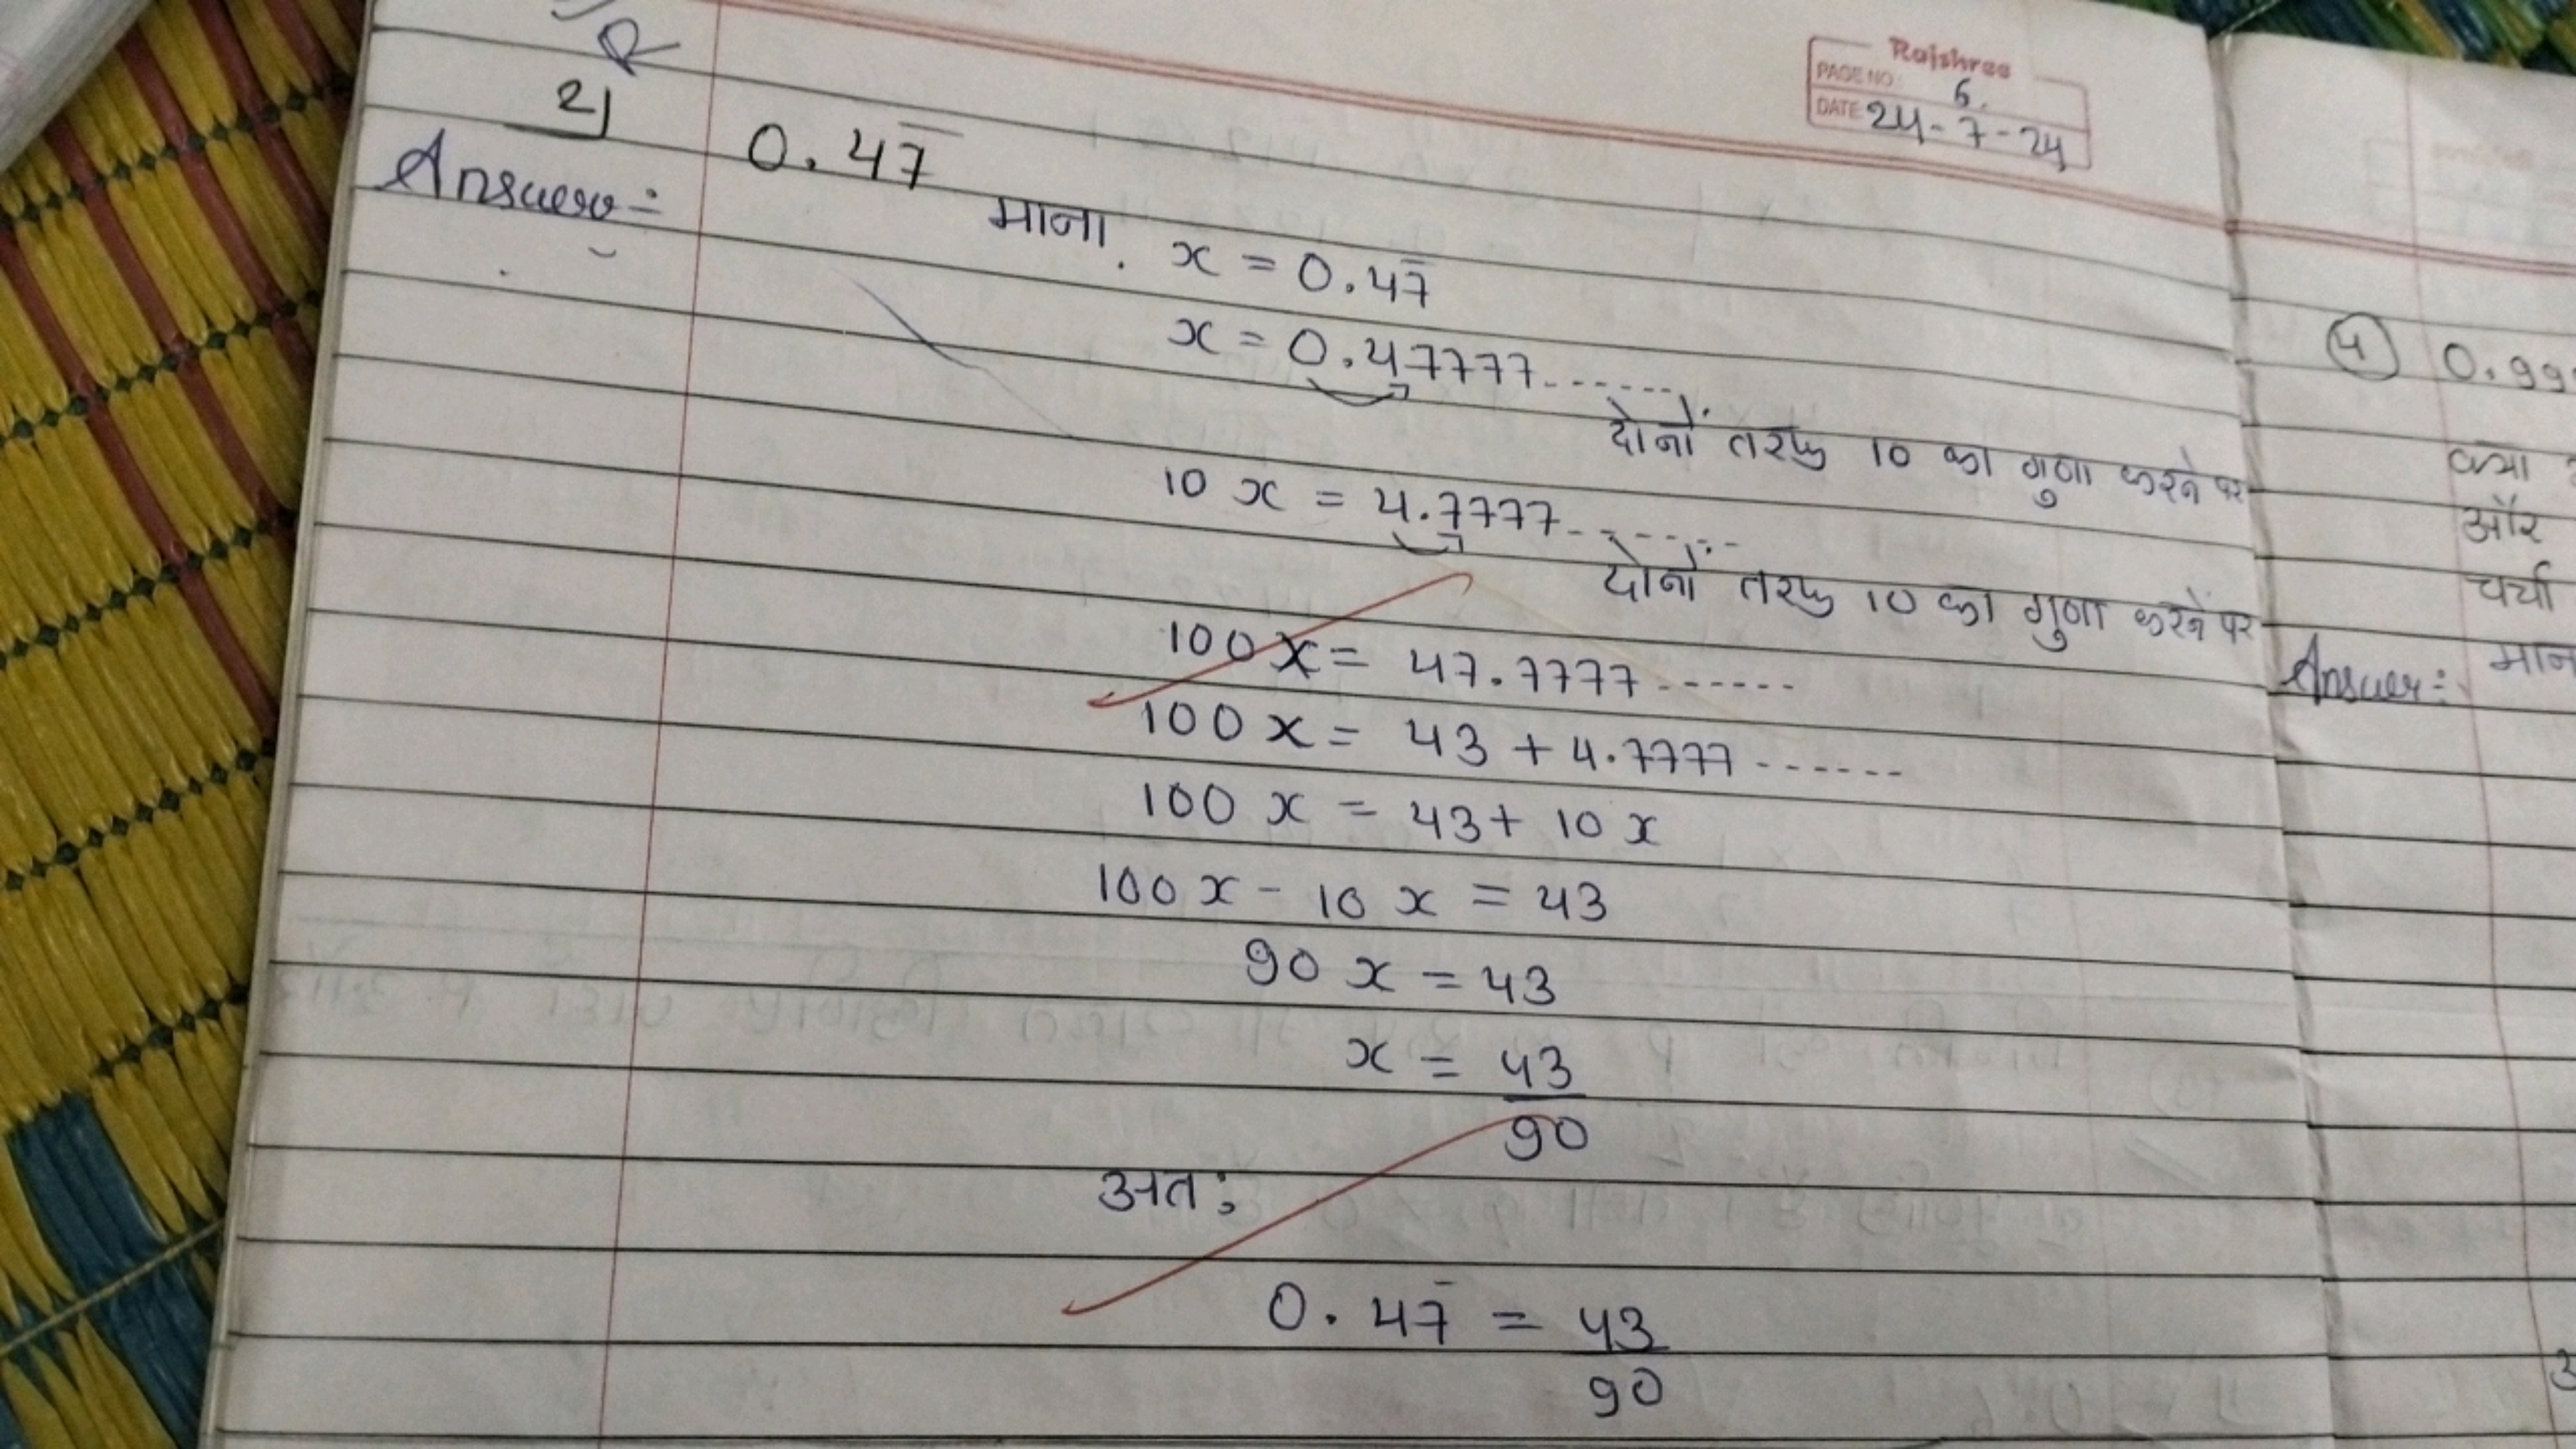 Rajshree
PAGE NO: 6.
DATE 24-7-24
2) 0.47̅
Answer:-
माना. x = 0.47̅
x = 0.47777.......
दोनों तरफ 10 का गुणा करने पर
10 x = 4.7777.......
दोनों तरफ 10 का गुणा करने पर
100 x = 47.7777......
100 x = 43 + 4.7777......
100 x = 43 + 10 x
100 x - 10 x = 43
90 x = 43
x = 43
90
अतः
0.47̅ = 43
90
4 0.99
क्या
और
चर्चा
Answer:- मान